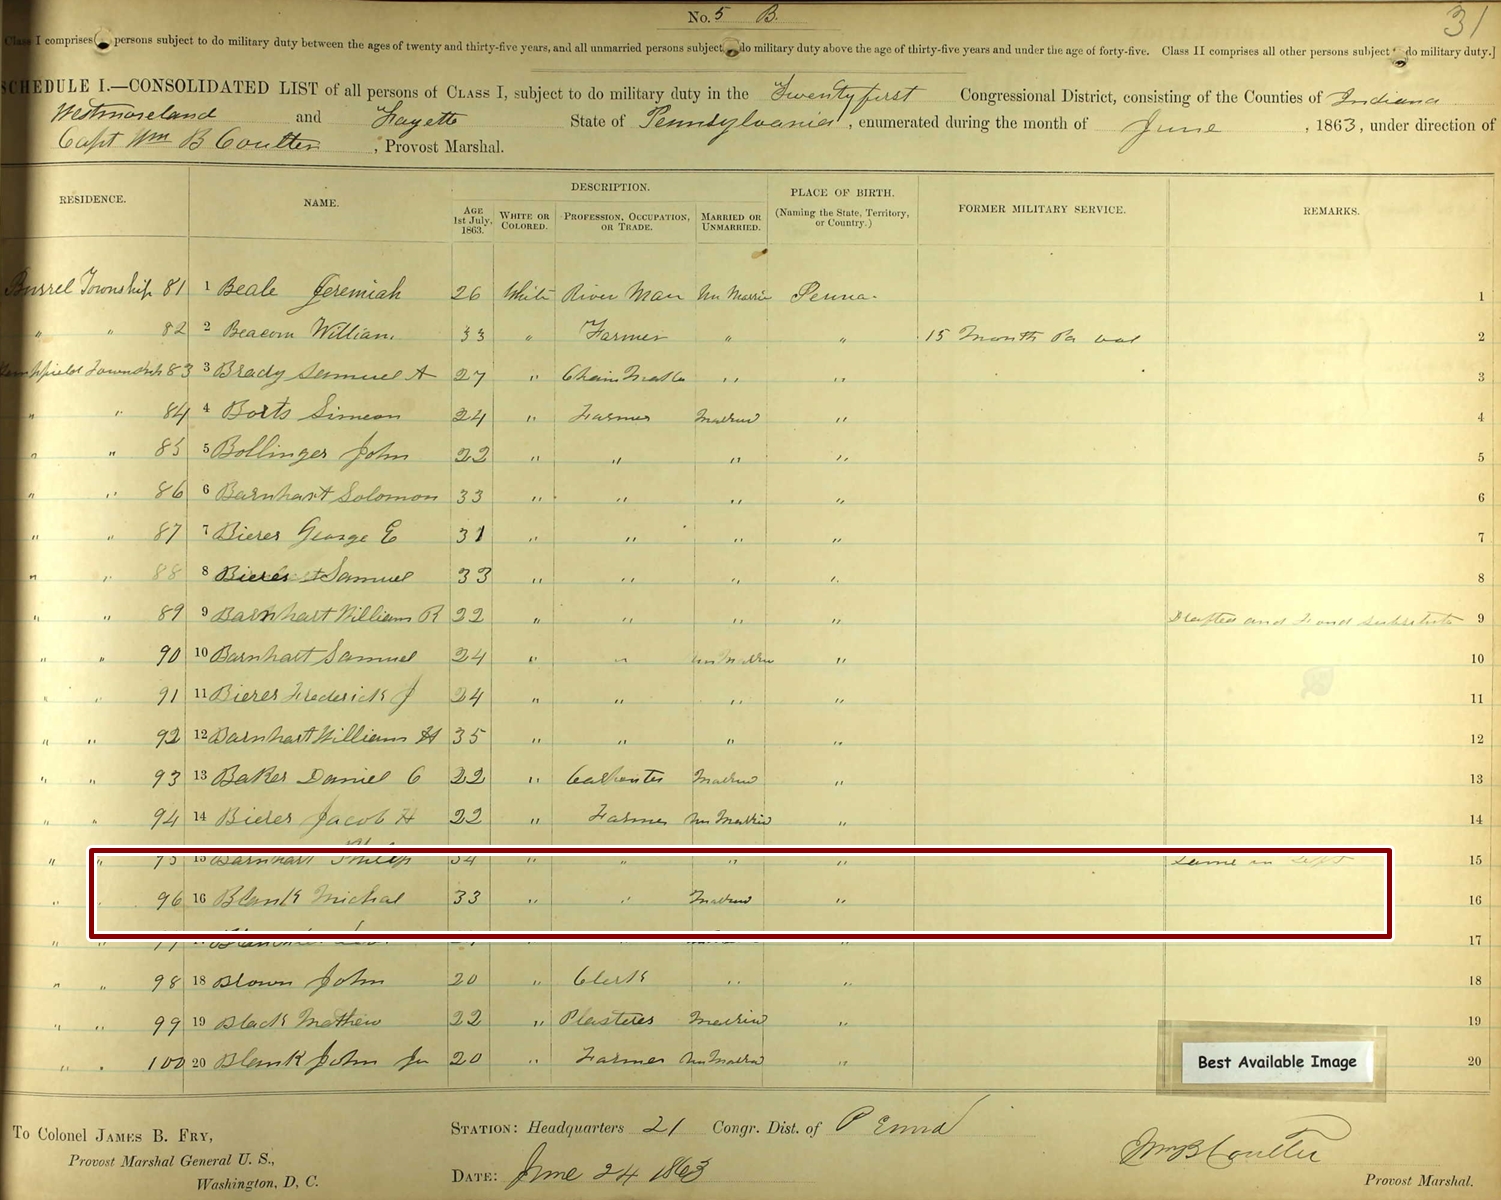 No. 5 B. 31
Class I comprises persons subject to do military duty between the ages of twenty and thirty-five years, and all unmarried persons subject do military duty above the age of thirty-five years and under the age of forty-five. Class II comprises all other persons subject do military duty.]
SCHEDULE I.—CONSOLIDATED LIST of all persons of CLASS I, subject to do military duty in the Twenty first Congressional District, consisting of the Counties of Indiana
Westmoreland and Fayette State of Pennsylvania, enumerated during the month of June, 1863, under direction of
Capt Wm B Coulter, Provost Marshal.
RESIDENCE. NAME. DESCRIPTION. PLACE OF BIRTH. (Naming the State, Territory, or Country.) FORMER MILITARY SERVICE. REMARKS.
AGE 1st July, 1863. WHITE OR COLORED. PROFESSION, OCCUPATION, OR TRADE. MARRIED OR UNMARRIED.
Burrel Township 81 1 Beale Jeremiah 26 White River Man Un Married Penna. 1
" " 82 2 Beacom William 33 " Farmer " " 15 Month Pa vol 2
Township 83 3 Brady Samuel A 27 " " " 3
" " 84 4 Borts Simeon 24 " Farmer Married " 4
" " 85 5 Bollinger John 22 " " " " 5
" " 86 6 Barnhart Solomon 33 " " " " 6
" " 87 7 Bierer George E 31 " " " " 7
" " 88 8 Bierer Samuel 33 " " " " 8
" " 89 9 Barnhart William R 22 " " " " Drafted and Found substitute 9
" " 90 10 Barnhart Samuel 24 " " Un Married " 10
" " 91 11 Bierer Frederick J 24 " " " " 11
" " 92 12 Barnhart William H 35 " " " " 12
" " 93 13 Baker Daniel C 22 " Carpenter Married " 13
" " 94 14 Bierer Jacob H 22 " Farmer Un Married " 14
" " 95 15 Barnhart Philip 34 " " " " Lame in Left 15
" " 96 16 Blank Michal 33 " " Married " 16
" " 97 17 17
" " 98 18 Brown John 20 " Clerk " " 18
" " 99 19 Black Mathew 22 " Plasterer Married " 19
" " 100 20 Blank John Jr 20 " Farmer Un Married " 20
Best Available Image
To Colonel JAMES B. FRY,
Provost Marshal General U. S.,
Washington, D, C.
STATION: Headquarters 21 Congr. Dist. of Penna
DATE: June 24 1863
Wm B Coulter
Provost Marshal.